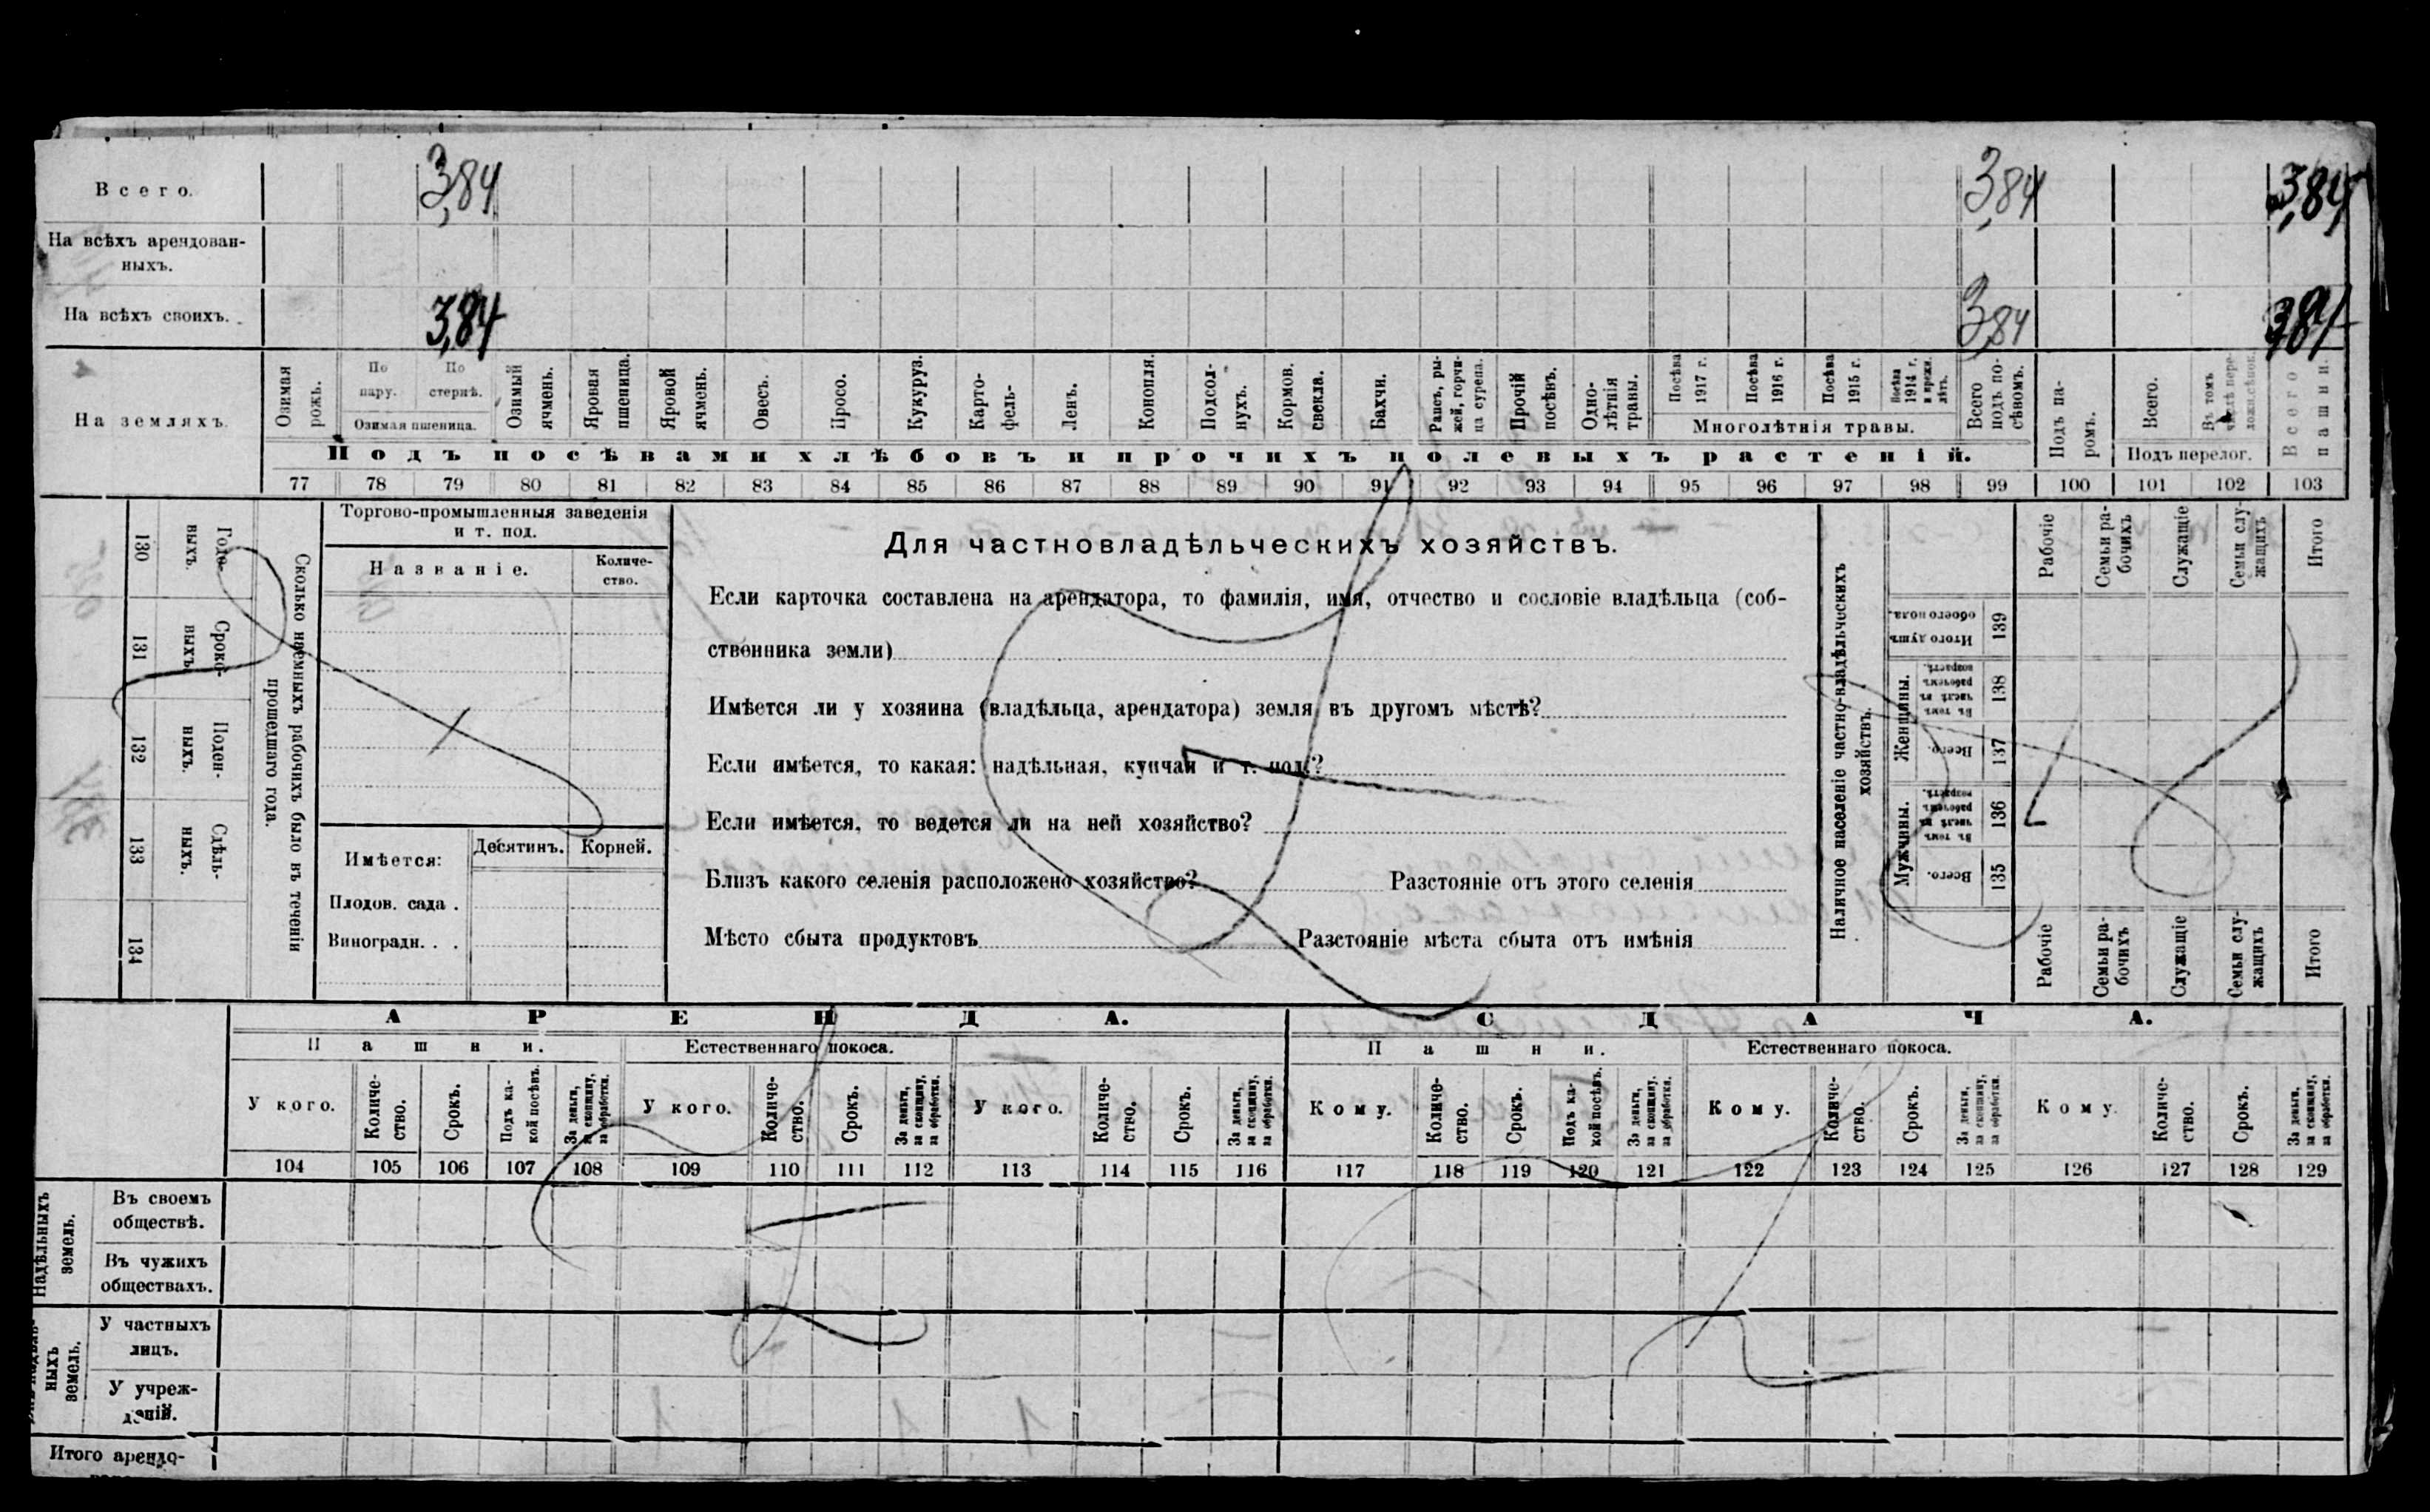 Всего. 3,84 3,84 3,84
На всѣхъ арендован-
ныхъ.
На всѣхъ своихъ. 3,84 3,84 3,84
На земляхъ.
Озимая рожь.
По пару.
По стернѣ.
Озимая пшеница.
Озимый ячмень.
Яровая пшеница.
Яровой ячмень.
Овесъ.
Просо.
Кукуруз.
Карто-
фель-
Ленъ.
Конопля.
Подсол-
нухъ.
Кормов.
свекла.
Бахчи.
Рапсъ, ры-
жей, горчи-
ца сурепа.
Прочій
посѣвъ.
Одно-
лѣтнія
травы.
Посѣва
1917 г.
Посѣва
1916 г.
Посѣва
1915 г.
Посѣва
1914 г.
и прежн.
лѣтъ.
Многолѣтнія травы.
Всего
подъ по-
сѣвомъ.
Подъ па-
ромъ.
Всего.
Въ томъ
числѣ пере-
Подъ перелог.
Всего
пашни.
Подъ посѣвами хлѣбовъ и прочихъ полевыхъ растеній.
77 78 79 80 81 82 83 84 85 86 87 88 89 90 91 92 93 94 95 96 97 98 99 100 101 102 103
130 131 132 133 134
Годо-
выхъ.
Сроко-
выхъ.
Поден-
ныхъ.
Сдѣль-
ныхъ.
Сколько наемныхъ рабочихъ было въ теченіи
прошедшаго года.
Торгово-промышленныя заведенія
и т. под.
Названіе.
Количе-
ство.
Имѣется:
Десятинъ. Корней.
Плодов. сада .
Виноградн. . .
Для частновладѣльческихъ хозяйствъ.
Если карточка составлена на арендатора, то фамилія, имя, отчество и сословіе владѣльца (соб-
ственника земли)
Имѣется ли у хозяина (владѣльца, арендатора) земля въ другомъ мѣстѣ?
Если имѣется, то какая: надѣльная, купчая и т. под.?
Если имѣется, то ведется ли на ней хозяйство?
Близъ какого селенія расположено хозяйство? Разстояніе отъ этого селенія
Мѣсто сбыта продуктовъ Разстояніе мѣста сбыта отъ имѣнія
Наличное населеніе частно-владѣльческихъ
хозяйствъ.
Рабочіе
Семьи ра-
бочихъ
Служащіе
Семьи слу-
жащихъ
Итого
Итого душъ
обоего пола.
139
Женщины.
Въ томъ
числѣ въ
рабочемъ
возрастѣ.
138
Всего.
137
Мужчины.
Въ томъ
числѣ въ
рабочемъ
возрастѣ.
136
Всего.
135
Рабочіе
Семьи ра-
бочихъ
Служащіе
Семьи слу-
жащихъ
Итого
АРЕНДА. СДАЧА.
Пашни. Естественнаго покоса. Пашни. Естественнаго покоса.
У кого.
Количе-
ство.
Срокъ.
Подъ ка-
кой посѣвъ.
За деньги,
за скопщину,
за обработки.
У кого.
Количе-
ство.
Срокъ.
За деньги,
за скопщину,
за обработки.
У кого.
Количе-
ство.
Срокъ.
За деньги,
за скопщину,
за обработки.
Кому.
Количе-
ство.
Срокъ.
Подъ ка-
кой посѣвъ.
За деньги,
за скопщину,
за обработки.
Кому.
Количе-
ство.
Срокъ.
За деньги,
за скопщину,
за обработки.
Кому.
Количе-
ство.
Срокъ.
За деньги,
за скопщину,
за обработки.
104 105 106 107 108 109 110 111 112 113 114 115 116 117 118 119 120 121 122 123 124 125 126 127 128 129
Надѣльныхъ
земель.
Въ своемъ
обществѣ.
Въ чужихъ
обществахъ.
ныхъ
земель.
У частныхъ
лицъ.
У учреж-
деній.
Итого арендо-